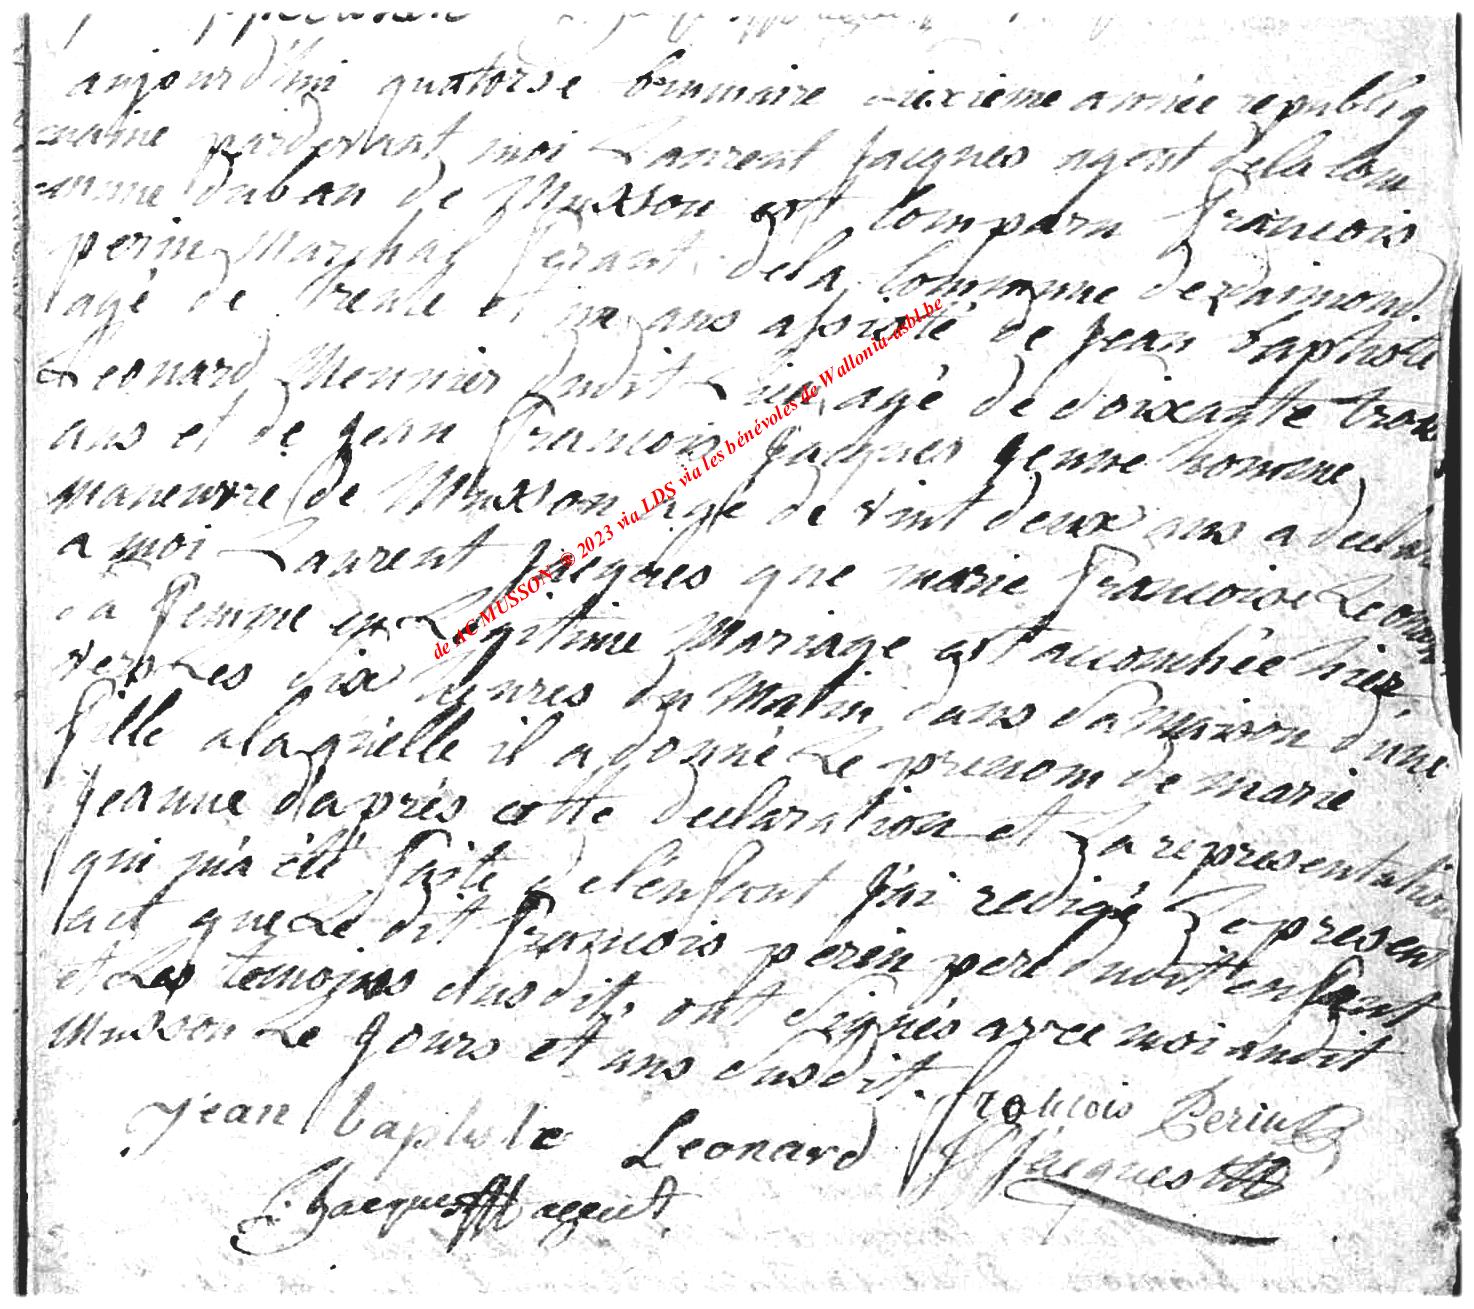 aujourd'hui quatorse brumaire sixieme année republiq
-uaine pardevant moi Laurent Jacques agent dela Com
-mune duban de Musson est Comparu francois
perin Marchal ferant dela Commune de
agé de trente et un ans assisté de Jean baptiste
Leonard Meunier dudit Lieu agé de soixante trois
ans et de Jean francois Jacques Jeune homme
maneuvre de Musson agé de vint deux ans a declaré
a moi Laurent Jacques que marie francoise Leonard
sa femme en Legitime Mariage est accouchée hier
vers Les six heures du Matin dans sa maison d'une
fille alaquelle il a donné Le prenom de marie
Jeanne d'aprés cette declaration et La representation
qui m'a été faite de l'enfant J'ai redigé Le present
act que Le dit francois perin pere dudit enfant
et Les temoins susdit, ont signés avec moi audit
Musson Le Jours et ans susdit. francois Perin
Jean baptiste Leonard Jacques
Jacques agent
de AC MUSSON © 2023 via LDS via les bénévoles de Wallonia-asbl.be